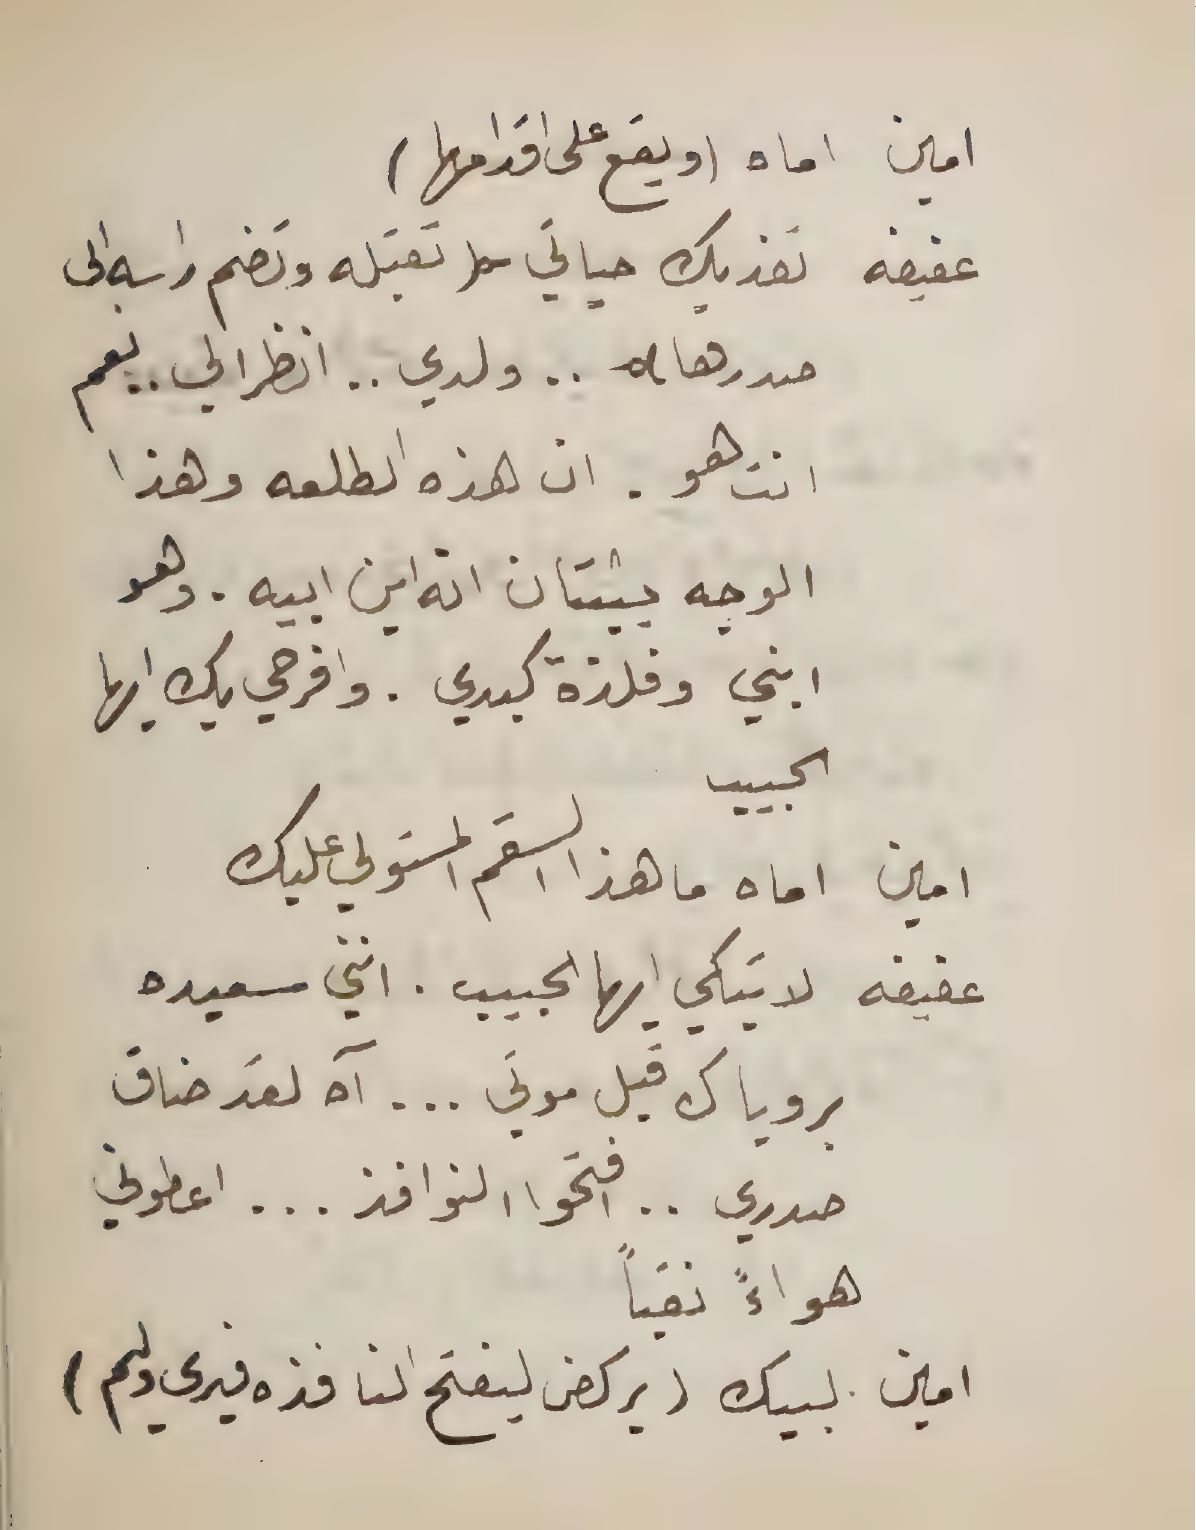 امين اماه (ويقع على اقدامها)
عفيفه تفديك حياتي تقبله وتضم راسه الى
صدرها .. ولدي .. انظر الي .. نعم
انت هو . ان هذه الطلعه وهذا
الوجه يثبتان انه ابن ابيه . وهو
ابني وفلذة كبدي . وافرحي بك ايها
الحبيب
امين اماه ما هذا السقم المستولي عليك
عفيفه لا تبكي ايها الحبيب . انني سعيده
بروياك قبل موتي ... آه لقد ضاق
صدري .. افتحوا النوافذ ... اعطوني
هواءً نقياً
امين لبيك (يركض ليفتح النافذه فيرى وليم)